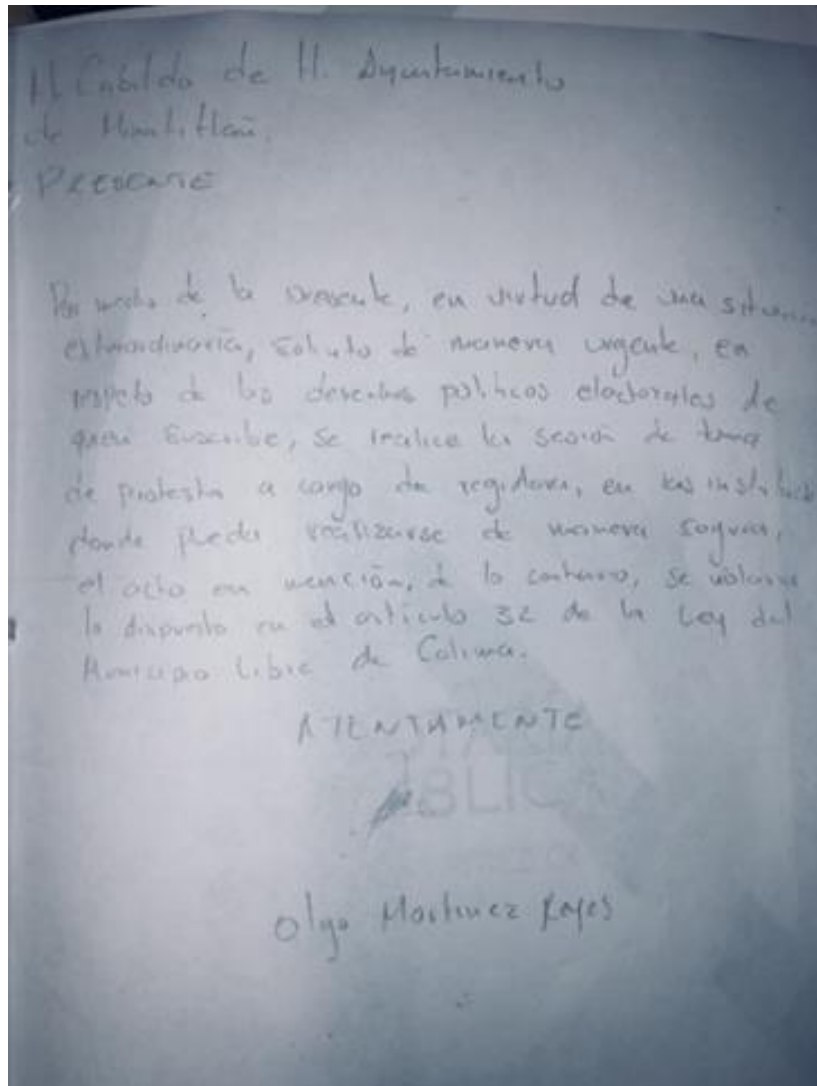 H Cabildo de H. Ayuntamiento
de Minatitlán.
PRESENTE
Por medio de la presente, en virtud de una situación
extraordinaria, solicito de manera urgente, en
respeto de los derechos políticos electorales de
quien suscribe, se realice la sesión de toma
de protesta a cargo de regidora, en las
donde pueda realizarse de manera segura,
el acto en mención, de lo contrario, se
lo dispuesto en el artículo 32 de la Ley del
Municipio Libre de Colima.
ATENTAMENTE
BLICA
Olga Martinez